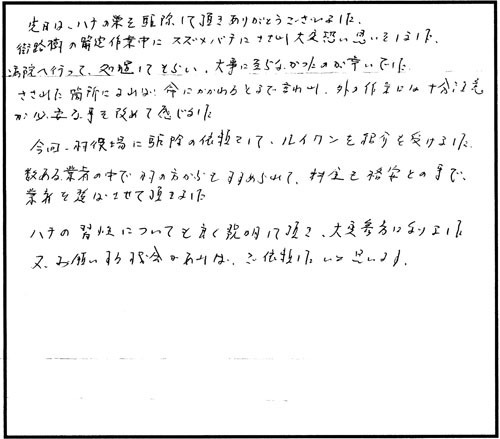 先日は、ハチの巣を駆除して頂きありがとうございました。
街路樹の剪定作業中にスズメバチにさされ大変恐い思いをしました。
病院へ行って、処置してもらい、大事に至らなかったのが幸いでした。
さされた箇所によれば、命にかかわるとまで言われ、外の作業には十分注意
が必要な事を改めて感じました
今回、村役場に駆除の依頼をして、ルイワンを紹介を受けました。
数ある業者の中で村の方からも勧められて、料金も格安との事で、
業者を選ばさせて頂きました
ハチの習性についても良く説明して頂き、大変参考になりました
又、お願いする機会があれば、ご依頼したいと思います。